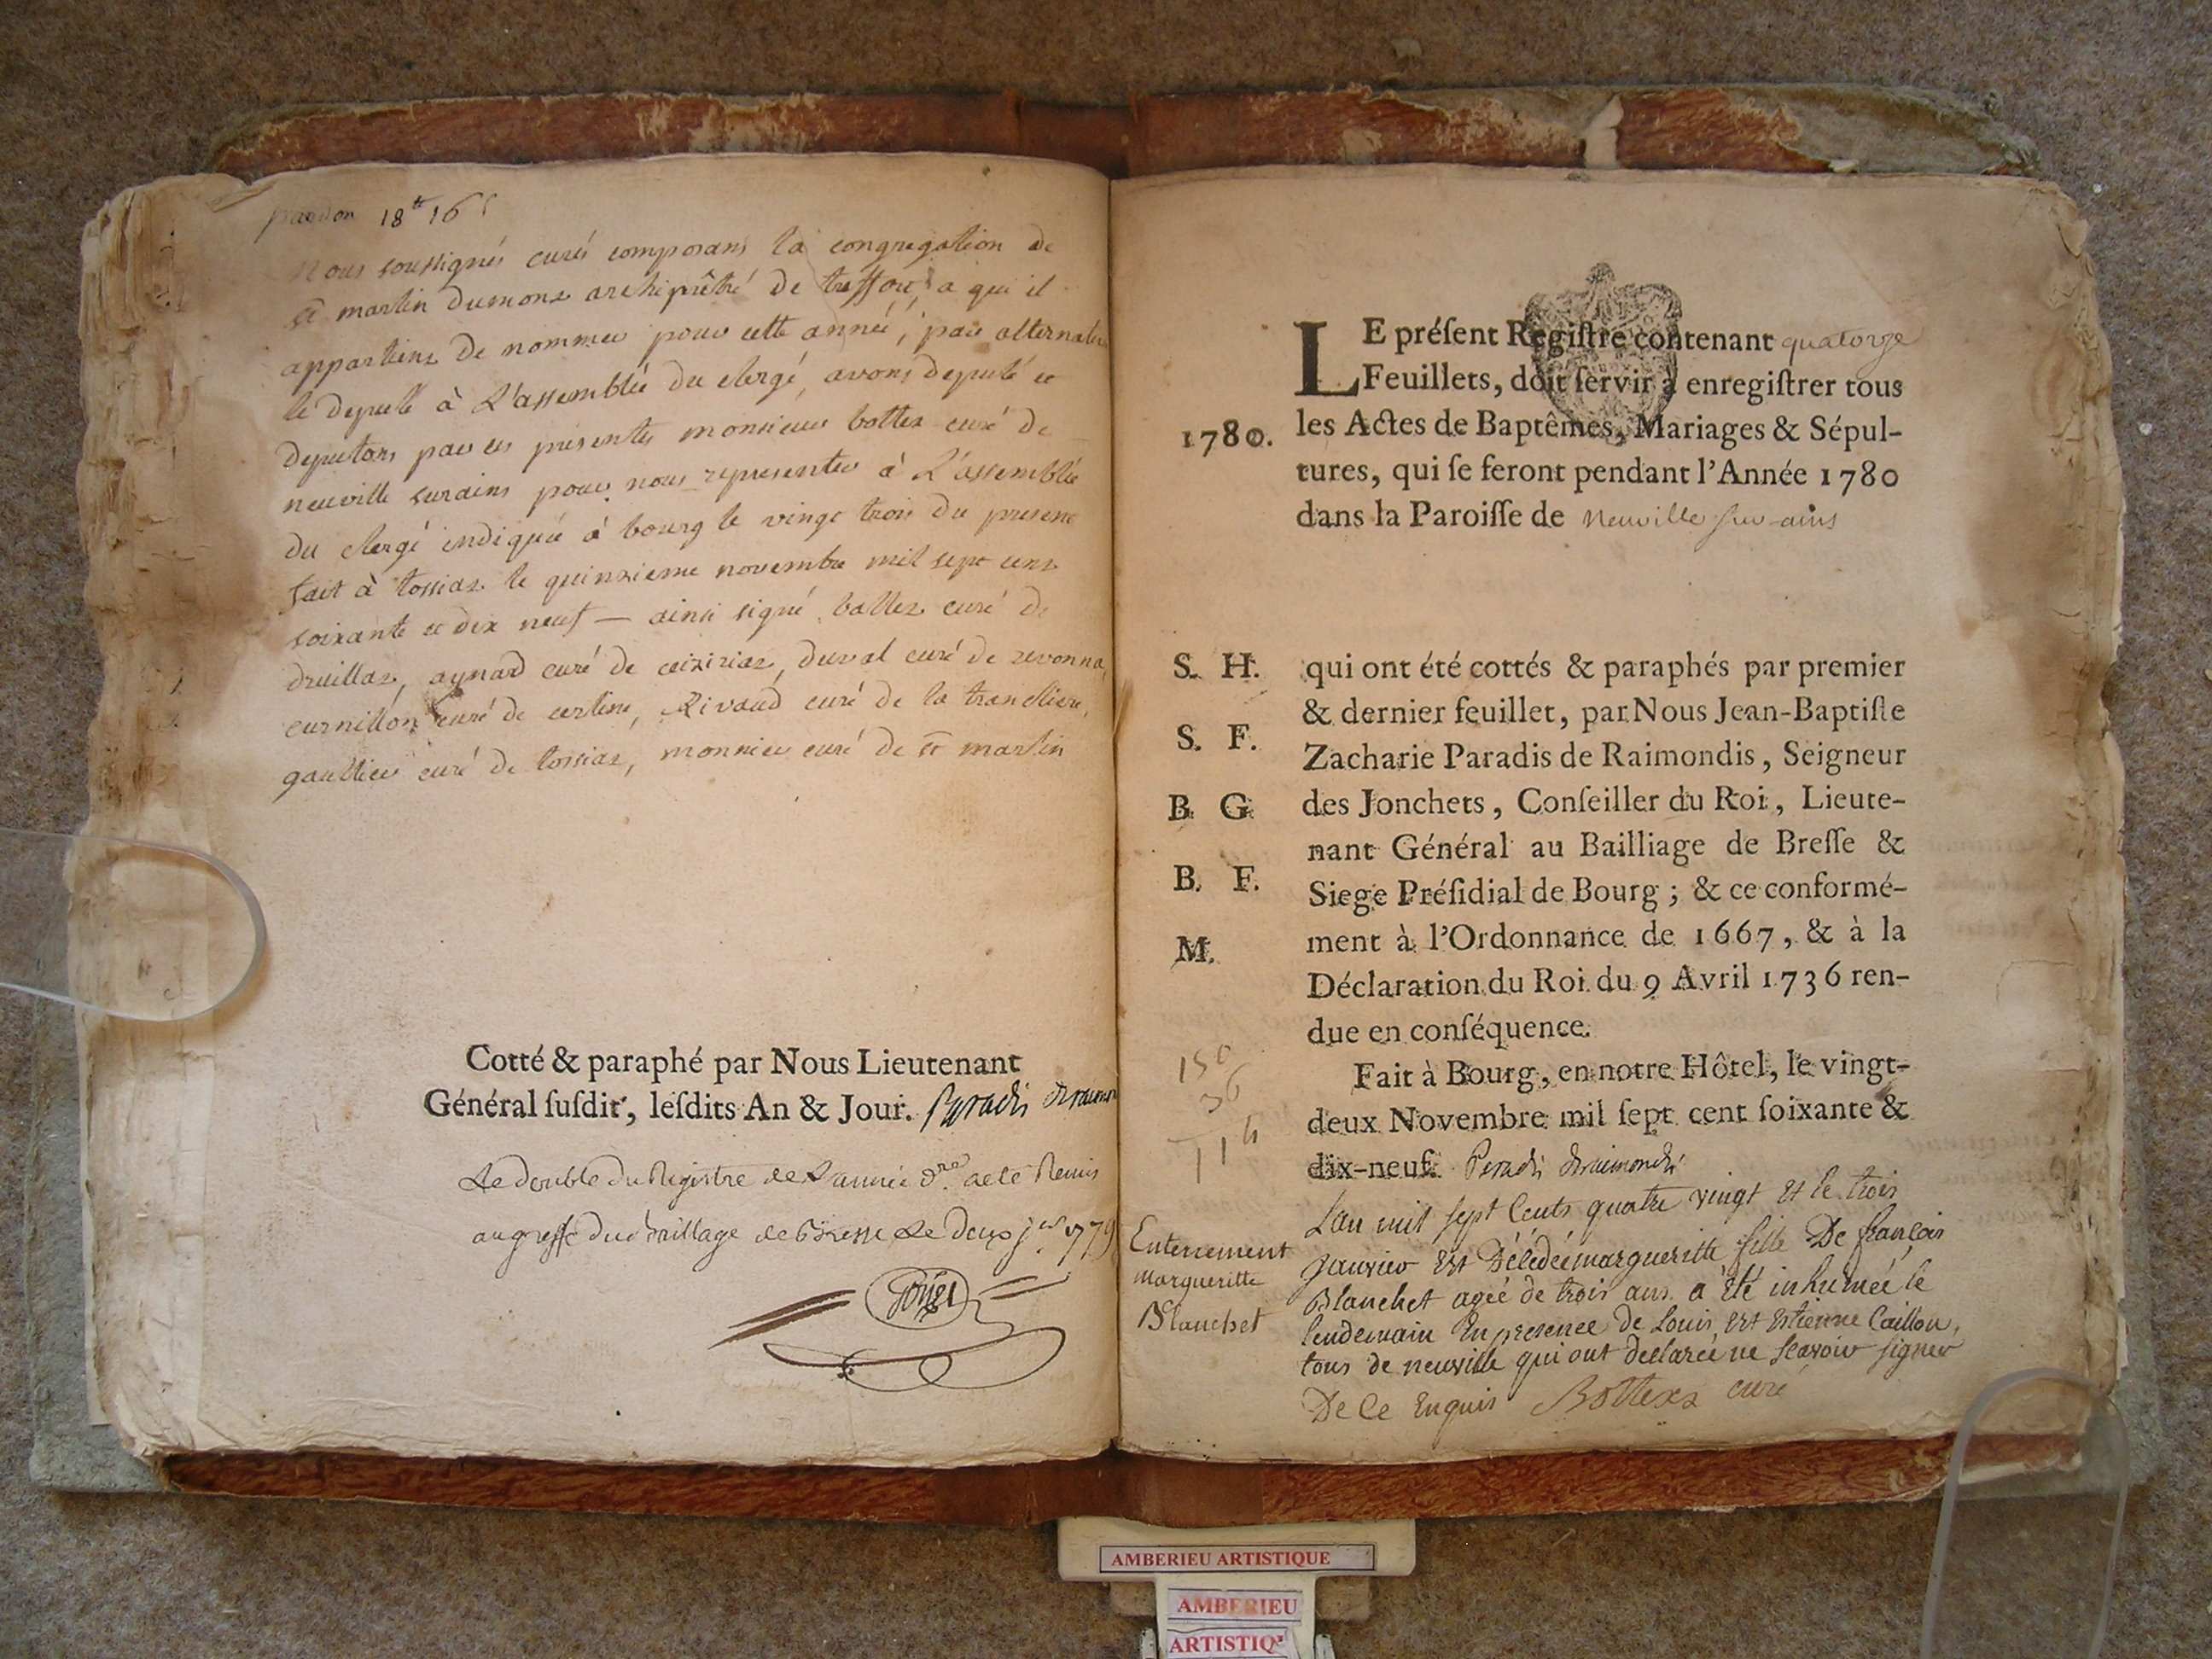 18 tt 16 s
Nous soussignés curés composans la congregation de
st martin dumont archiprêtré de treffort a qui il
appartient de nommer pour cette année, par alternative
le deputé à L'assemblée du clergé, avons deputé et
deputons par ces presentes monsieur bottex curé de
neuville surains pour nous representer à L'assemblée
du clergé indiquée à bourg le vingt trois du present
fait à tossiat le quinzieme novembre mil sept cent
soixante et dix neuf — ainsi signé, bottex curé de
druillat, aynard curé de ceiziriat, duval curé de revonna,
curnillon curé de certine, Rivaud curé de la trancliere,
gaultier curé de tossiat, monnier curé de st martin
Cotté & paraphé par Nous Lieutenant
Général ſuſdit, leſdits An & Jour. Paradis Deraimon
Le double du Registre de L'année dre a eté Remis
au greffe du Bailliage de Bresse Le deux jer 1779
LE préſent Regiſtre contenant quatorze
Feuillets, doit ſervir à enregiſtrer tous
1780. les Actes de Baptêmes, Mariages & Sépul-
tures, qui ſe feront pendant l'Année 1780
dans la Paroiſſe de Neuville sur ains
S. H. qui ont été cottés & paraphés par premier
& dernier feuillet, par Nous Jean-Baptiſte
S. F. Zacharie Paradis de Raimondis, Seigneur
B G des Jonchets, Conſeiller du Roi, Lieute-
nant Général au Bailliage de Breſſe &
B. F. Siege Préſidial de Bourg ; & ce conformé-
M. ment à l'Ordonnance de 1667, & à la
Déclaration du Roi du 9 Avril 1736 ren-
due en conſéquence.
150
36
114
Fait à Bourg, en notre Hôtel, le vingt-
deux Novembre mil ſept cent ſoixante &
dix-neuf. Paradis Deraimondis
Enterrement
Margueritte
Blanchet
L'an mil sept Cents quatre vingt et le trois
Janvier Est Décédée margueritte fille De françois
Blanchet agée de trois ans a été inhumée le
lendemain En presence de Louis Est Estienne Caillou,
tous de neuville qui ont declaréé ne scavoir signer
De Ce Enquis Bottex curé
AMBERIEU ARTISTIQUE
AMBERIEU
ARTISTIQ